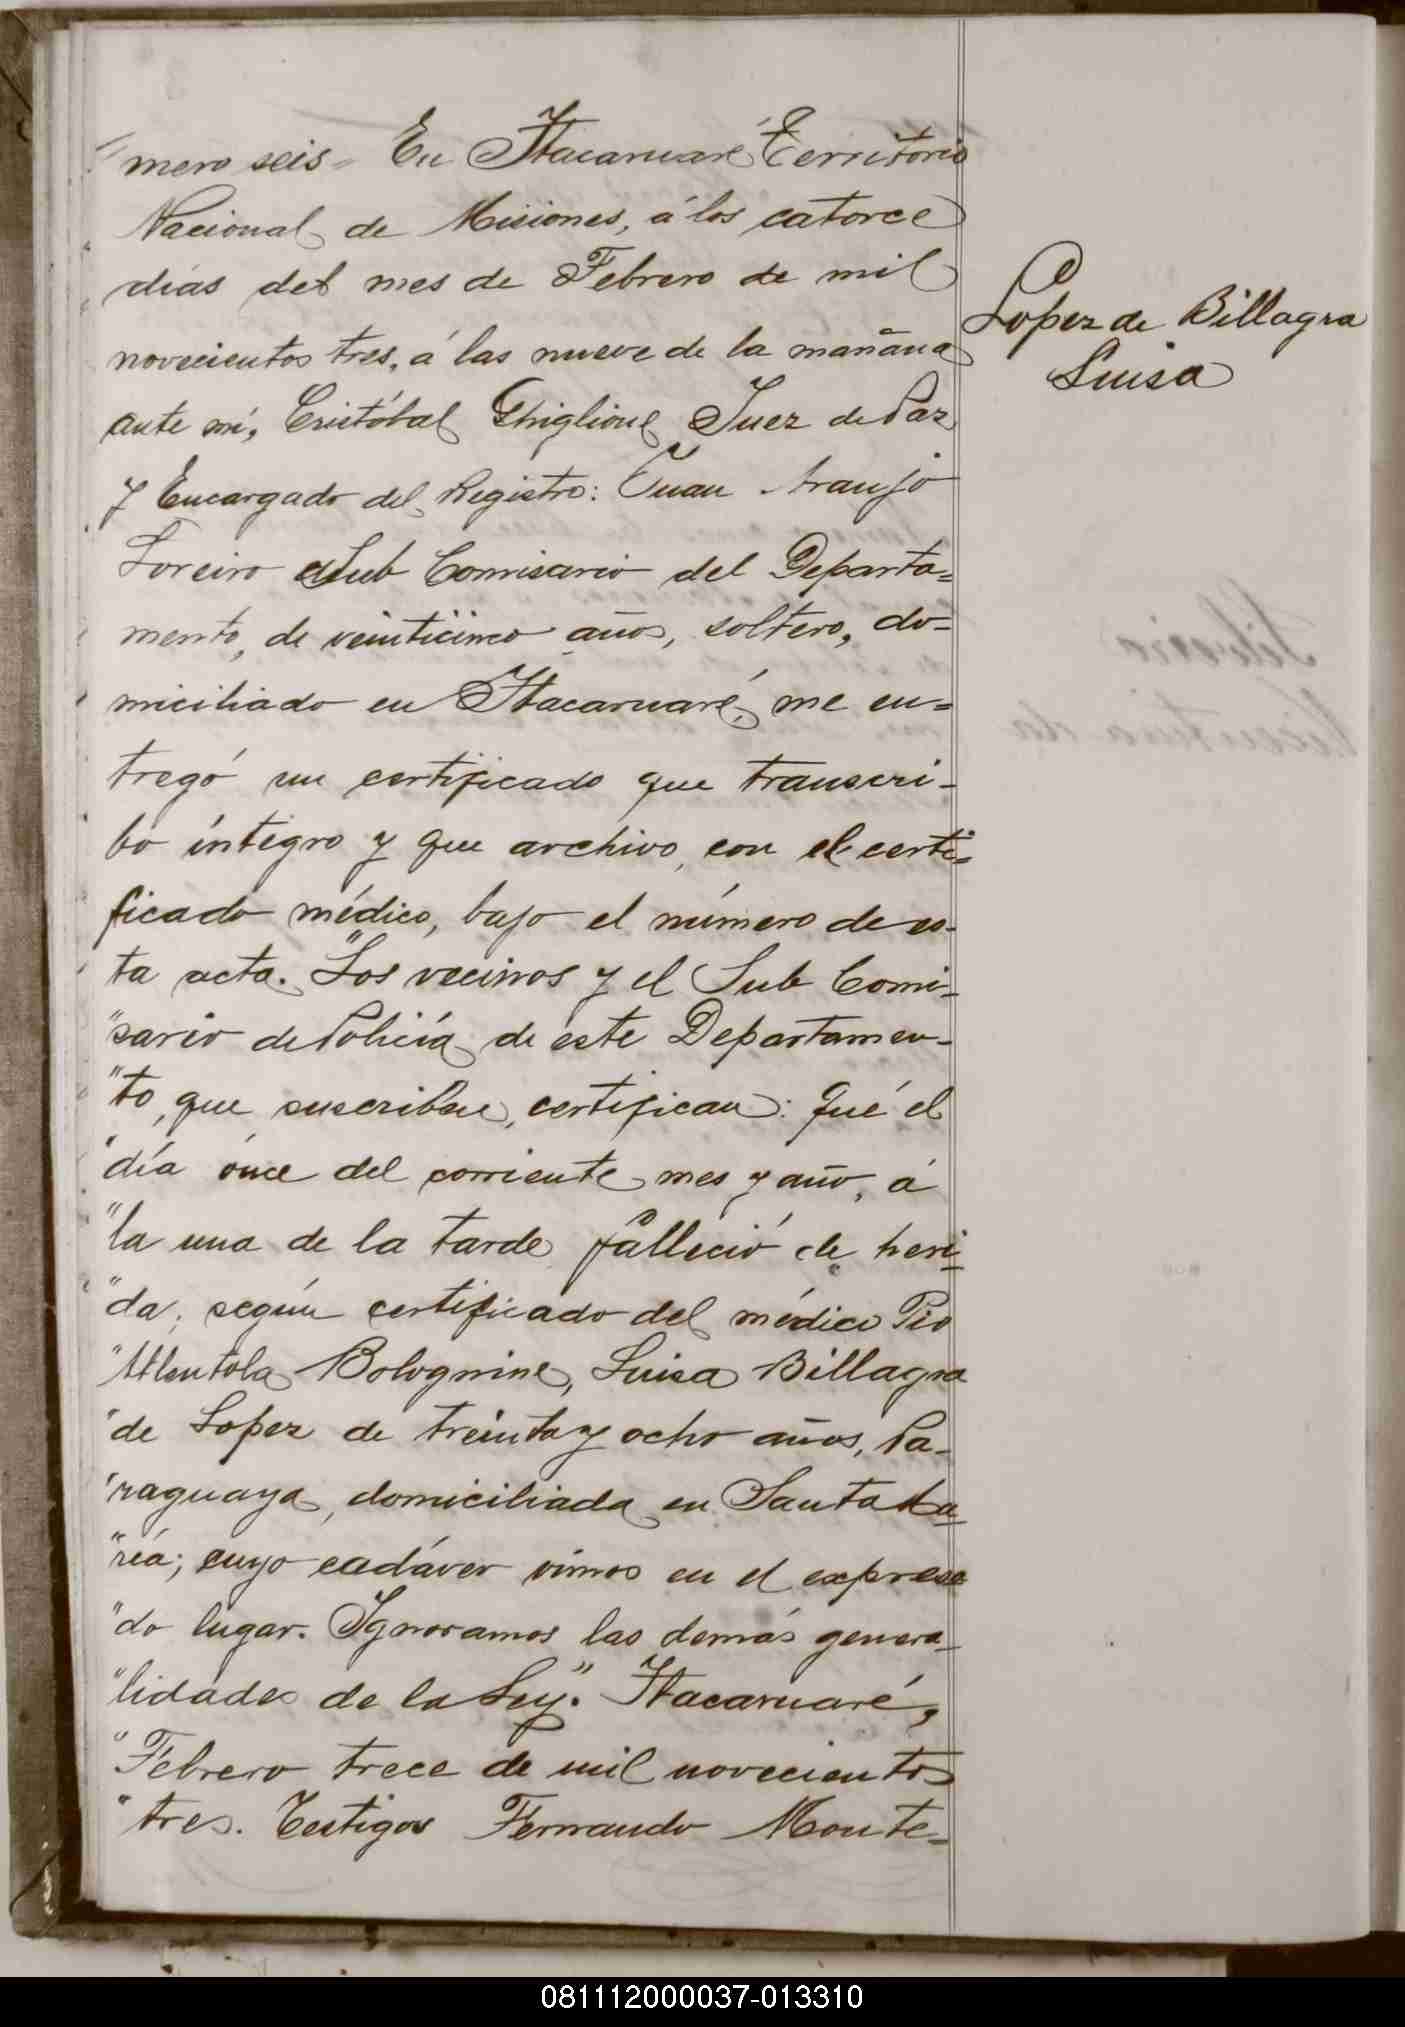 mero seis= En Itacaruaré Territorio
Nacional de Misiones, á los catorce
días del mes de Febrero de mil
novecientos tres, á las nueve de la mañana
ante mí, Cristóbal Ghiglione Juez de Paz
y Encargado del Registro: Juan Araujo
Loreiro Sub Comisario del Departa=
mento, de veinticinco años, soltero, do=
miciliado en Itacaruaré, me en=
tregó un certificado que transcri-
bo íntegro y que archivo, con el certi=
ficado médico, bajo el número de es-
ta acta. "Los vecinos y el Sub Comi-
"sario de Policía de este Departamen-
"to, que suscriben, certifican: Qué el
"día ónce del corriente mes y año, á
"la una de la tarde falleció de heri-
"da, según certificado del médico Pio
Bolognine, Luisa Billagra
"de Lopez de treinta y ocho años, Pa-
"raguaya, domiciliada en Santa Ma-
"ría; cuyo cadáver vimos en el expresa
"do lugar. Ignoramos las demás genera-
"lidades de la Ley". Itacaruaré,
"Febrero trece de mil novecientos
"tres. Testigos Fernando Monte=
Lopez de Billagra
Luisa
081112000037-013310